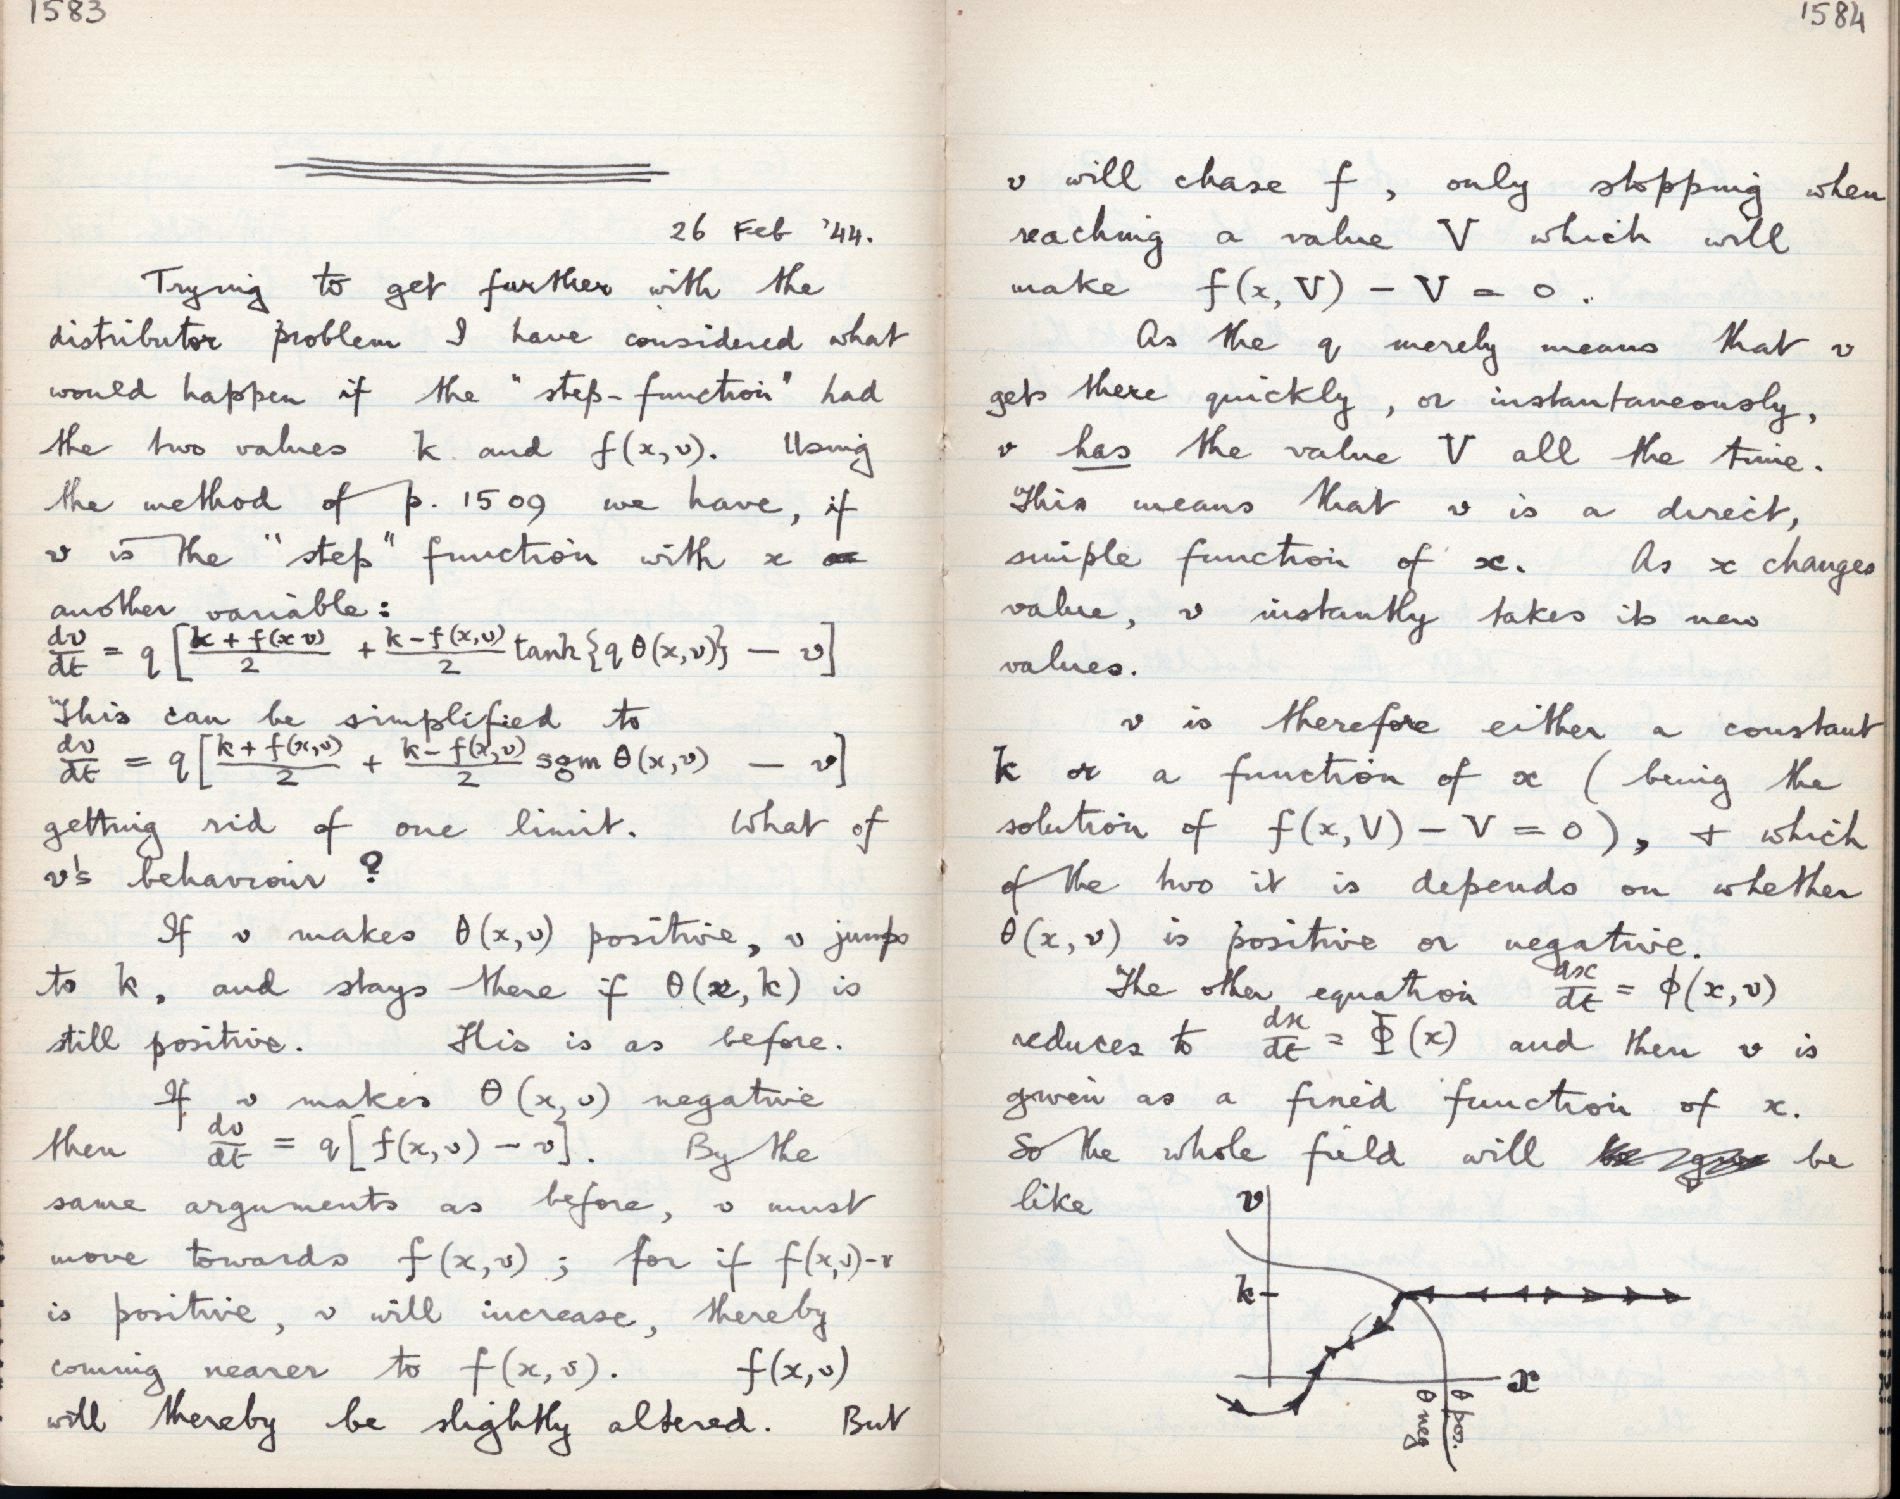 1583
26 Feb '44.
Trying to get further with the
distributor problem I have considered what
would happen if the "step-function" had
the two values k and f(x,v). Using
the method of p. 1509 we have, if
v is the "step" function with x
another variable:
dv/dt = q [ (k + f(x v))/2 + (k - f(x,v))/2 tanh{q θ(x,v)} - v]
This can be simplified to
dv/dt = q [ (k + f(x,v))/2 + (k - f(x,v))/2 sgm θ(x,v) - v]
getting rid of one limit. What of
v's behaviour?
If v makes θ(x,v) positive, v jumps
to k, and stays there if θ(x,k) is
still positive. This is as before.
If v makes θ(x,v) negative
then dv/dt = q[f(x,v) - v]. By the
same arguments as before, v must
move towards f(x,v); for if f(x,v)-v
is positive, v will increase, thereby
coming nearer to f(x,v). f(x,v)
will thereby be slightly altered. But
1584
v will chase f, only stopping when
reaching a value V which will
make f(x,V) - V = 0.
As the q merely means that v
gets there quickly, or instantaneously,
v has the value V all the time.
This means that v is a direct,
simple function of x. As x changes
value, v instantly takes its new
values.
v is therefore either a constant
k or a function of x (being the
solution of f(x,V) - V = 0), + which
of the two it is depends on whether
θ(x,v) is positive or negative.
The other equation dx/dt = ϕ(x,v)
reduces to dx/dt = Φ(x) and then v is
given as a fixed function of x.
So the whole field will be
like
v
k
x
θ neg
θ pos.